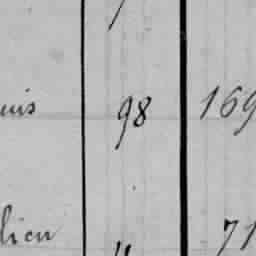 uis 98 169
lien 11 71